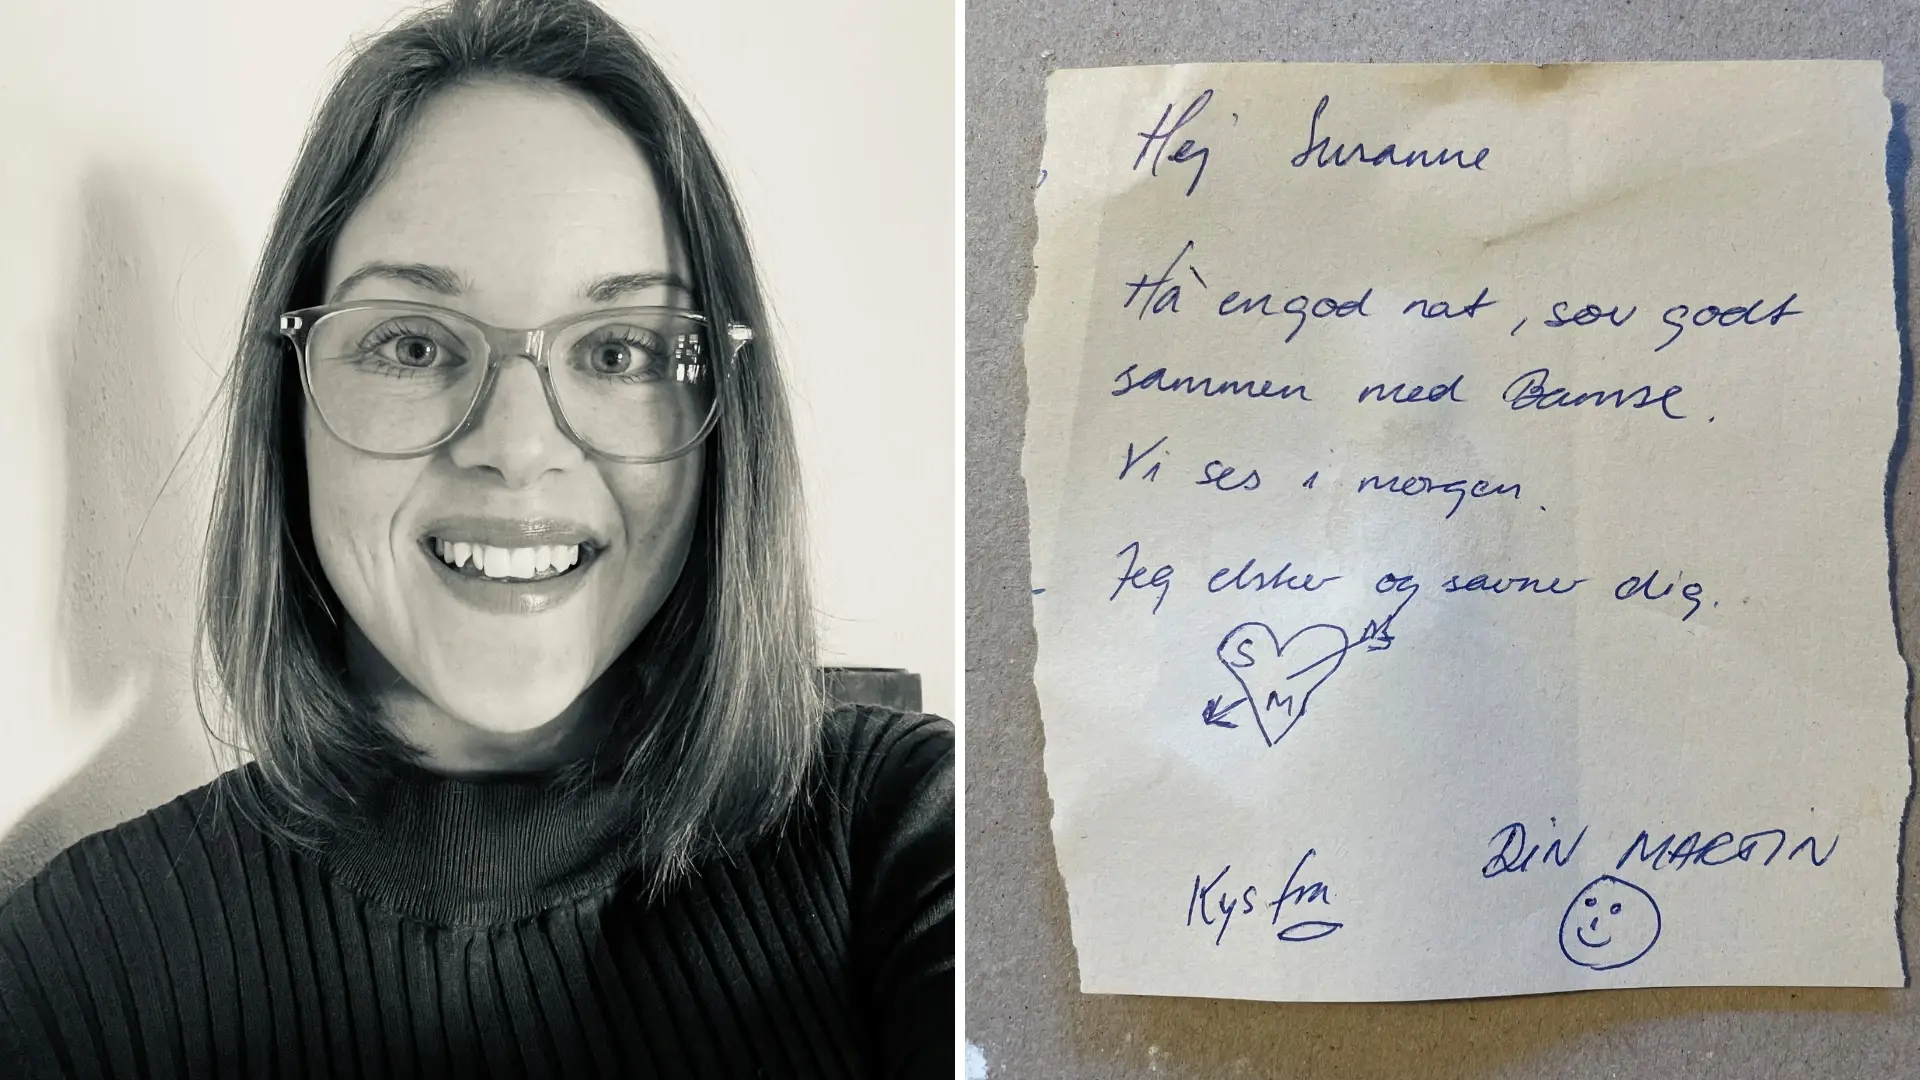 Hej Susanne
Hà en god nat, sov godt
sammen med Bamse.
Vi ses i morgen.
Jeg elsker og savner dig.
S
M
Kys fra
DIN MARTIN